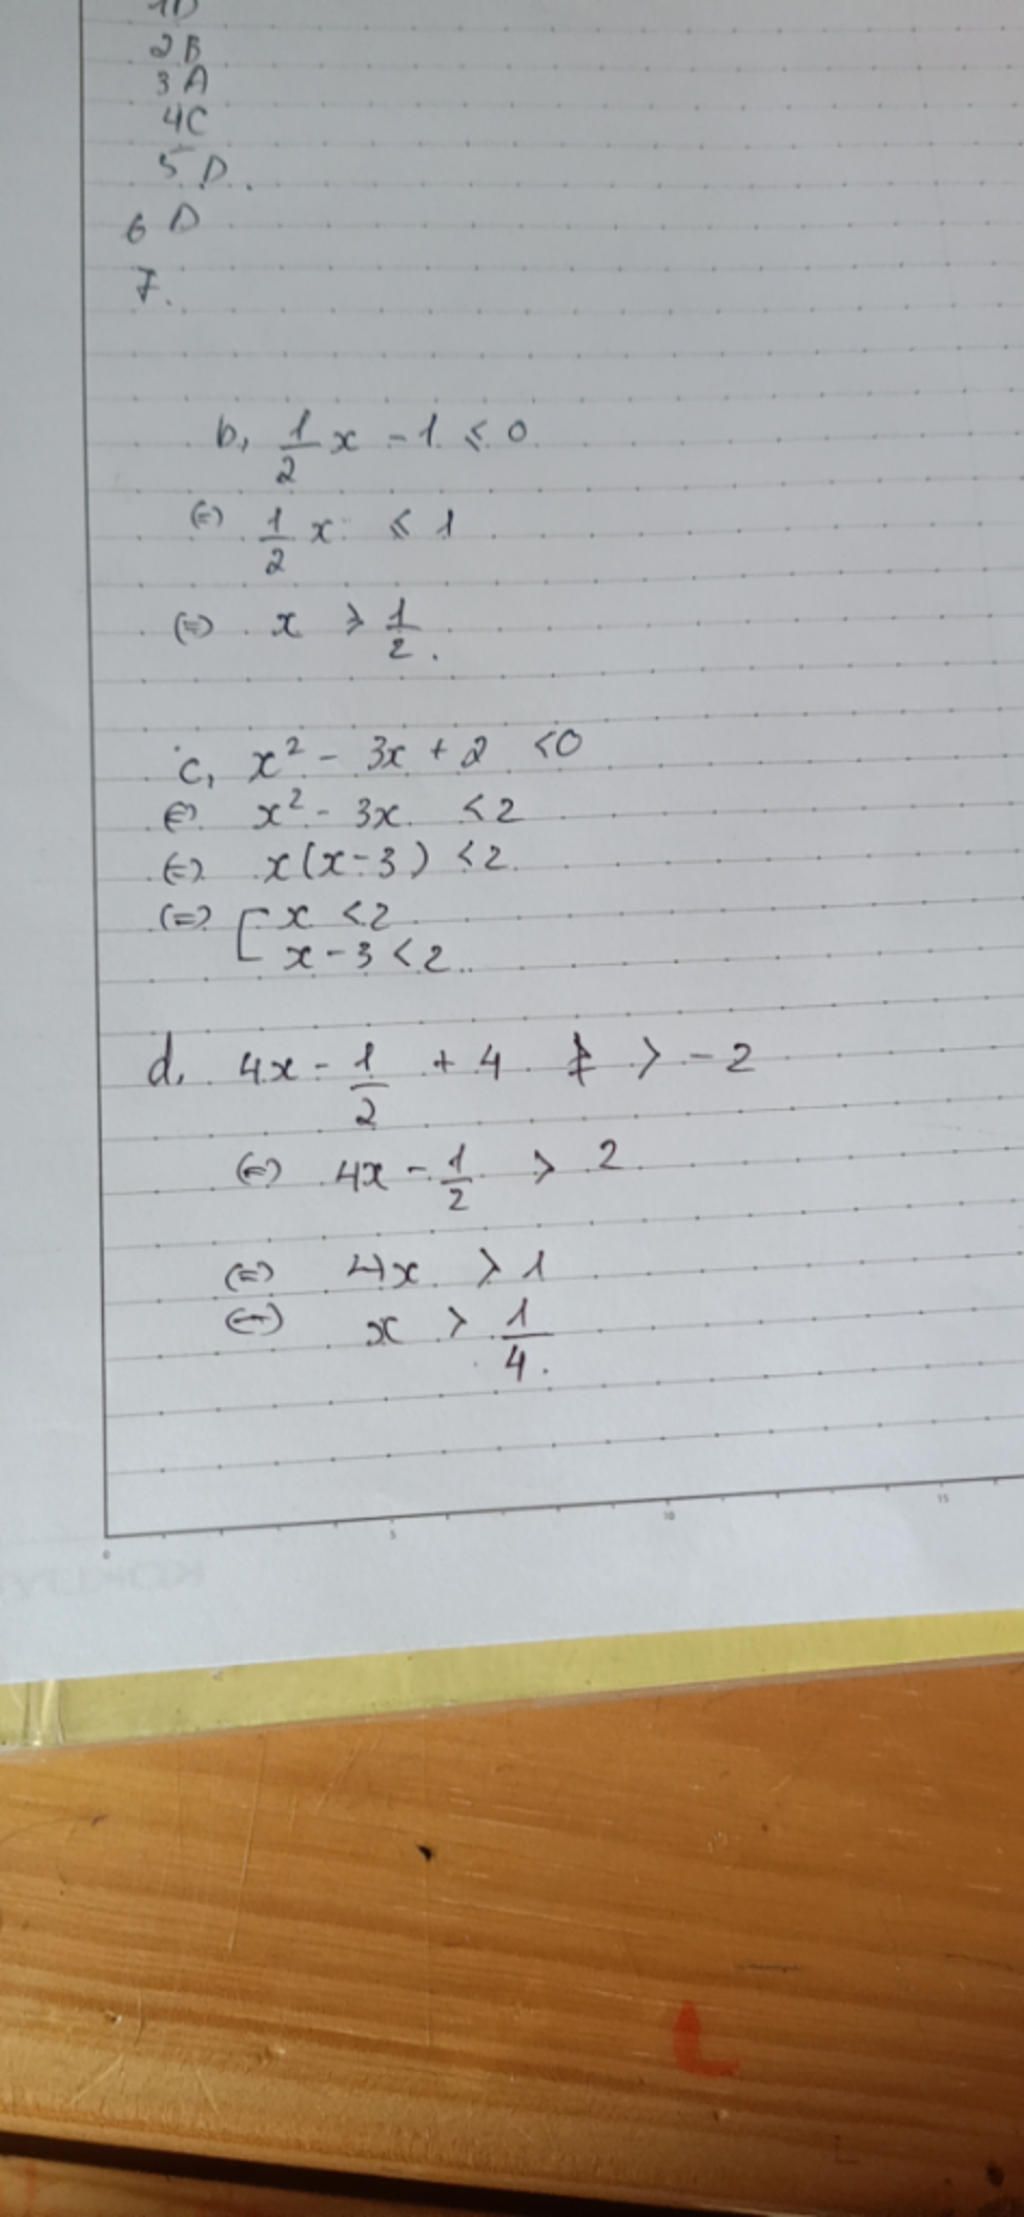 1D
2B
3A
4C
5D.
6D
7.
b, 1/2 x - 1 ≤ 0
(=) 1/2 x ≤ 1
(=) x ≥ 1/2.
c, x² - 3x + 2 < 0
(=) x² - 3x < 2
(=) x(x-3) < 2.
(=) [ x < 2
x - 3 < 2..
d, 4x - 1/2 + 4 > -2
(=) 4x - 1/2 > 2
(=) 4x > 1
(=) x > 1/4.
0 5 10 15